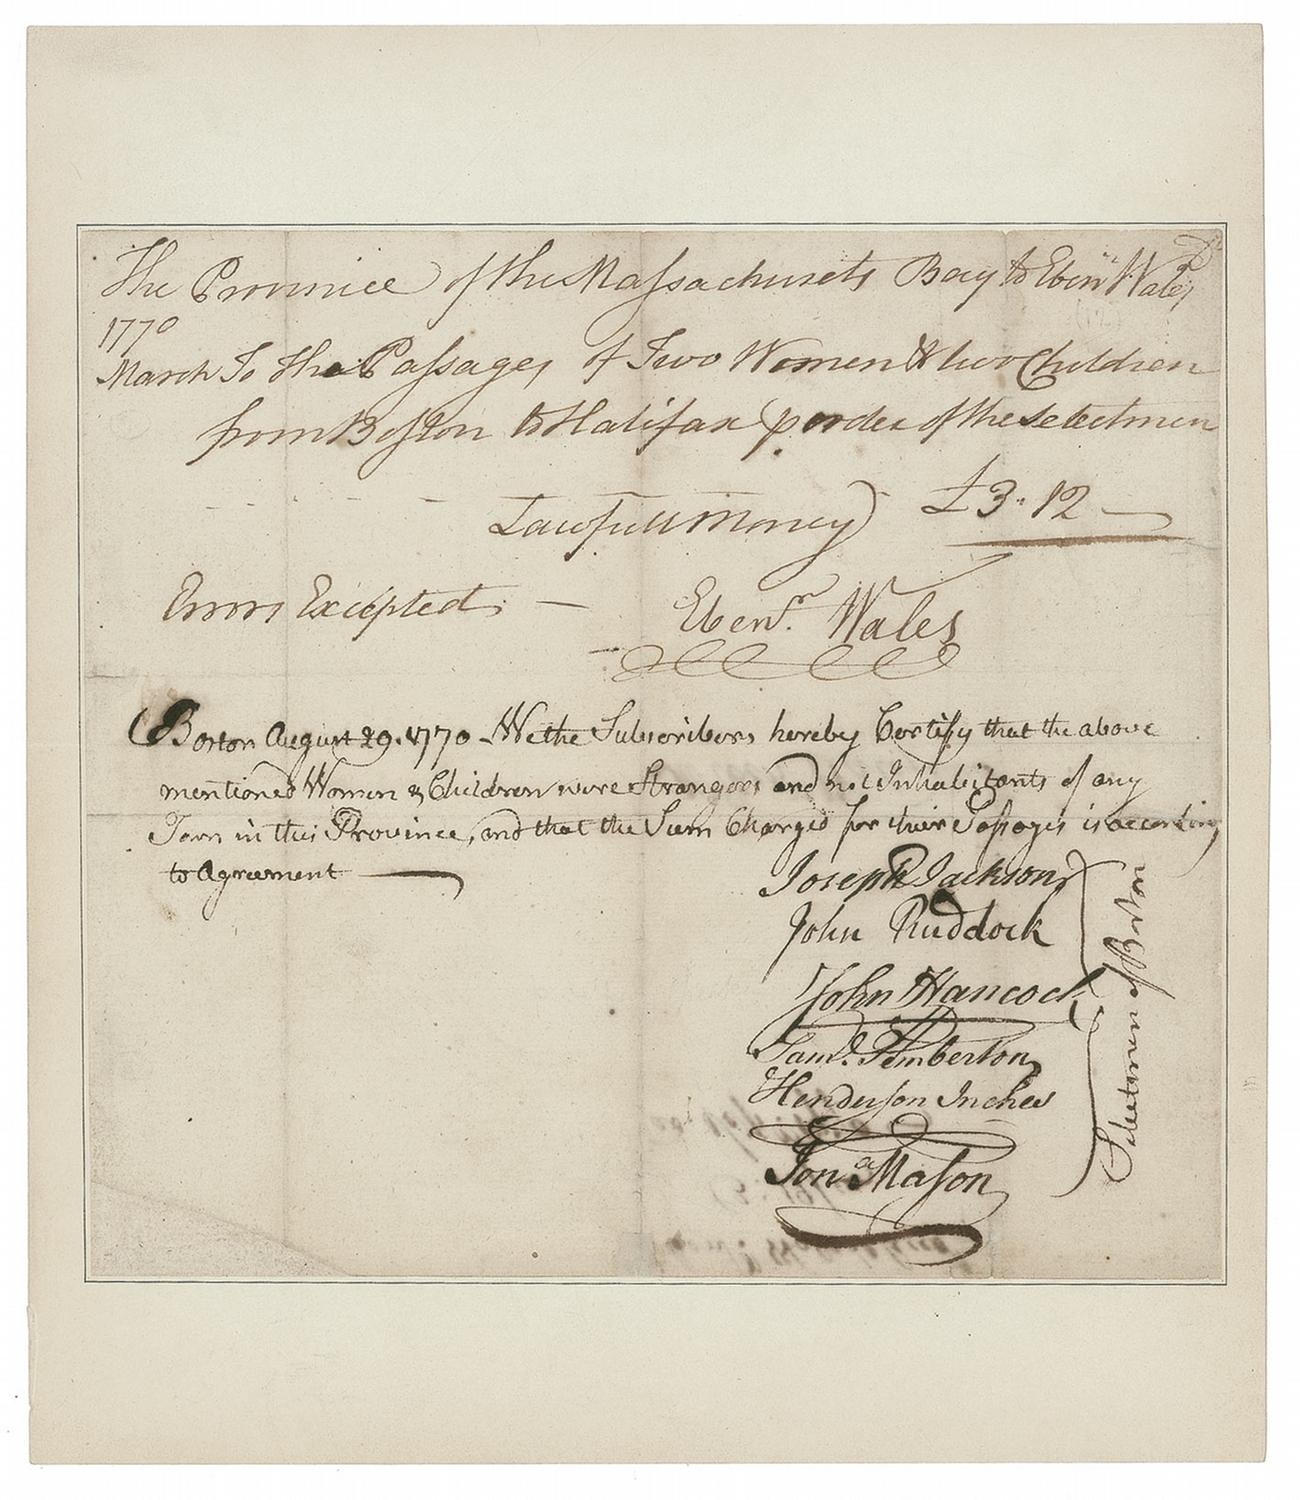 The Province of the Massachusets Bay to Eben.r Wales Dr
1770
March To the Passages of Two Women & two Children
from Boston to Halifax p order of the Selectmen
Lawfull Money } £3.12
Errors Excepted, —
Eben.r Wales
Boston August 29. 1770 - We the Subscribers hereby Certify that the above
mentioned Women & Children were Strangers and not Inhabitants of any
Town in this Province, and that the Sum Charged for their Passages is according
to Agreement
Joseph Jackson
John Ruddock
John Hancock
Sam.l Pemberton
Henderson Inches
Jon.a Mason
Selectmen of Boston